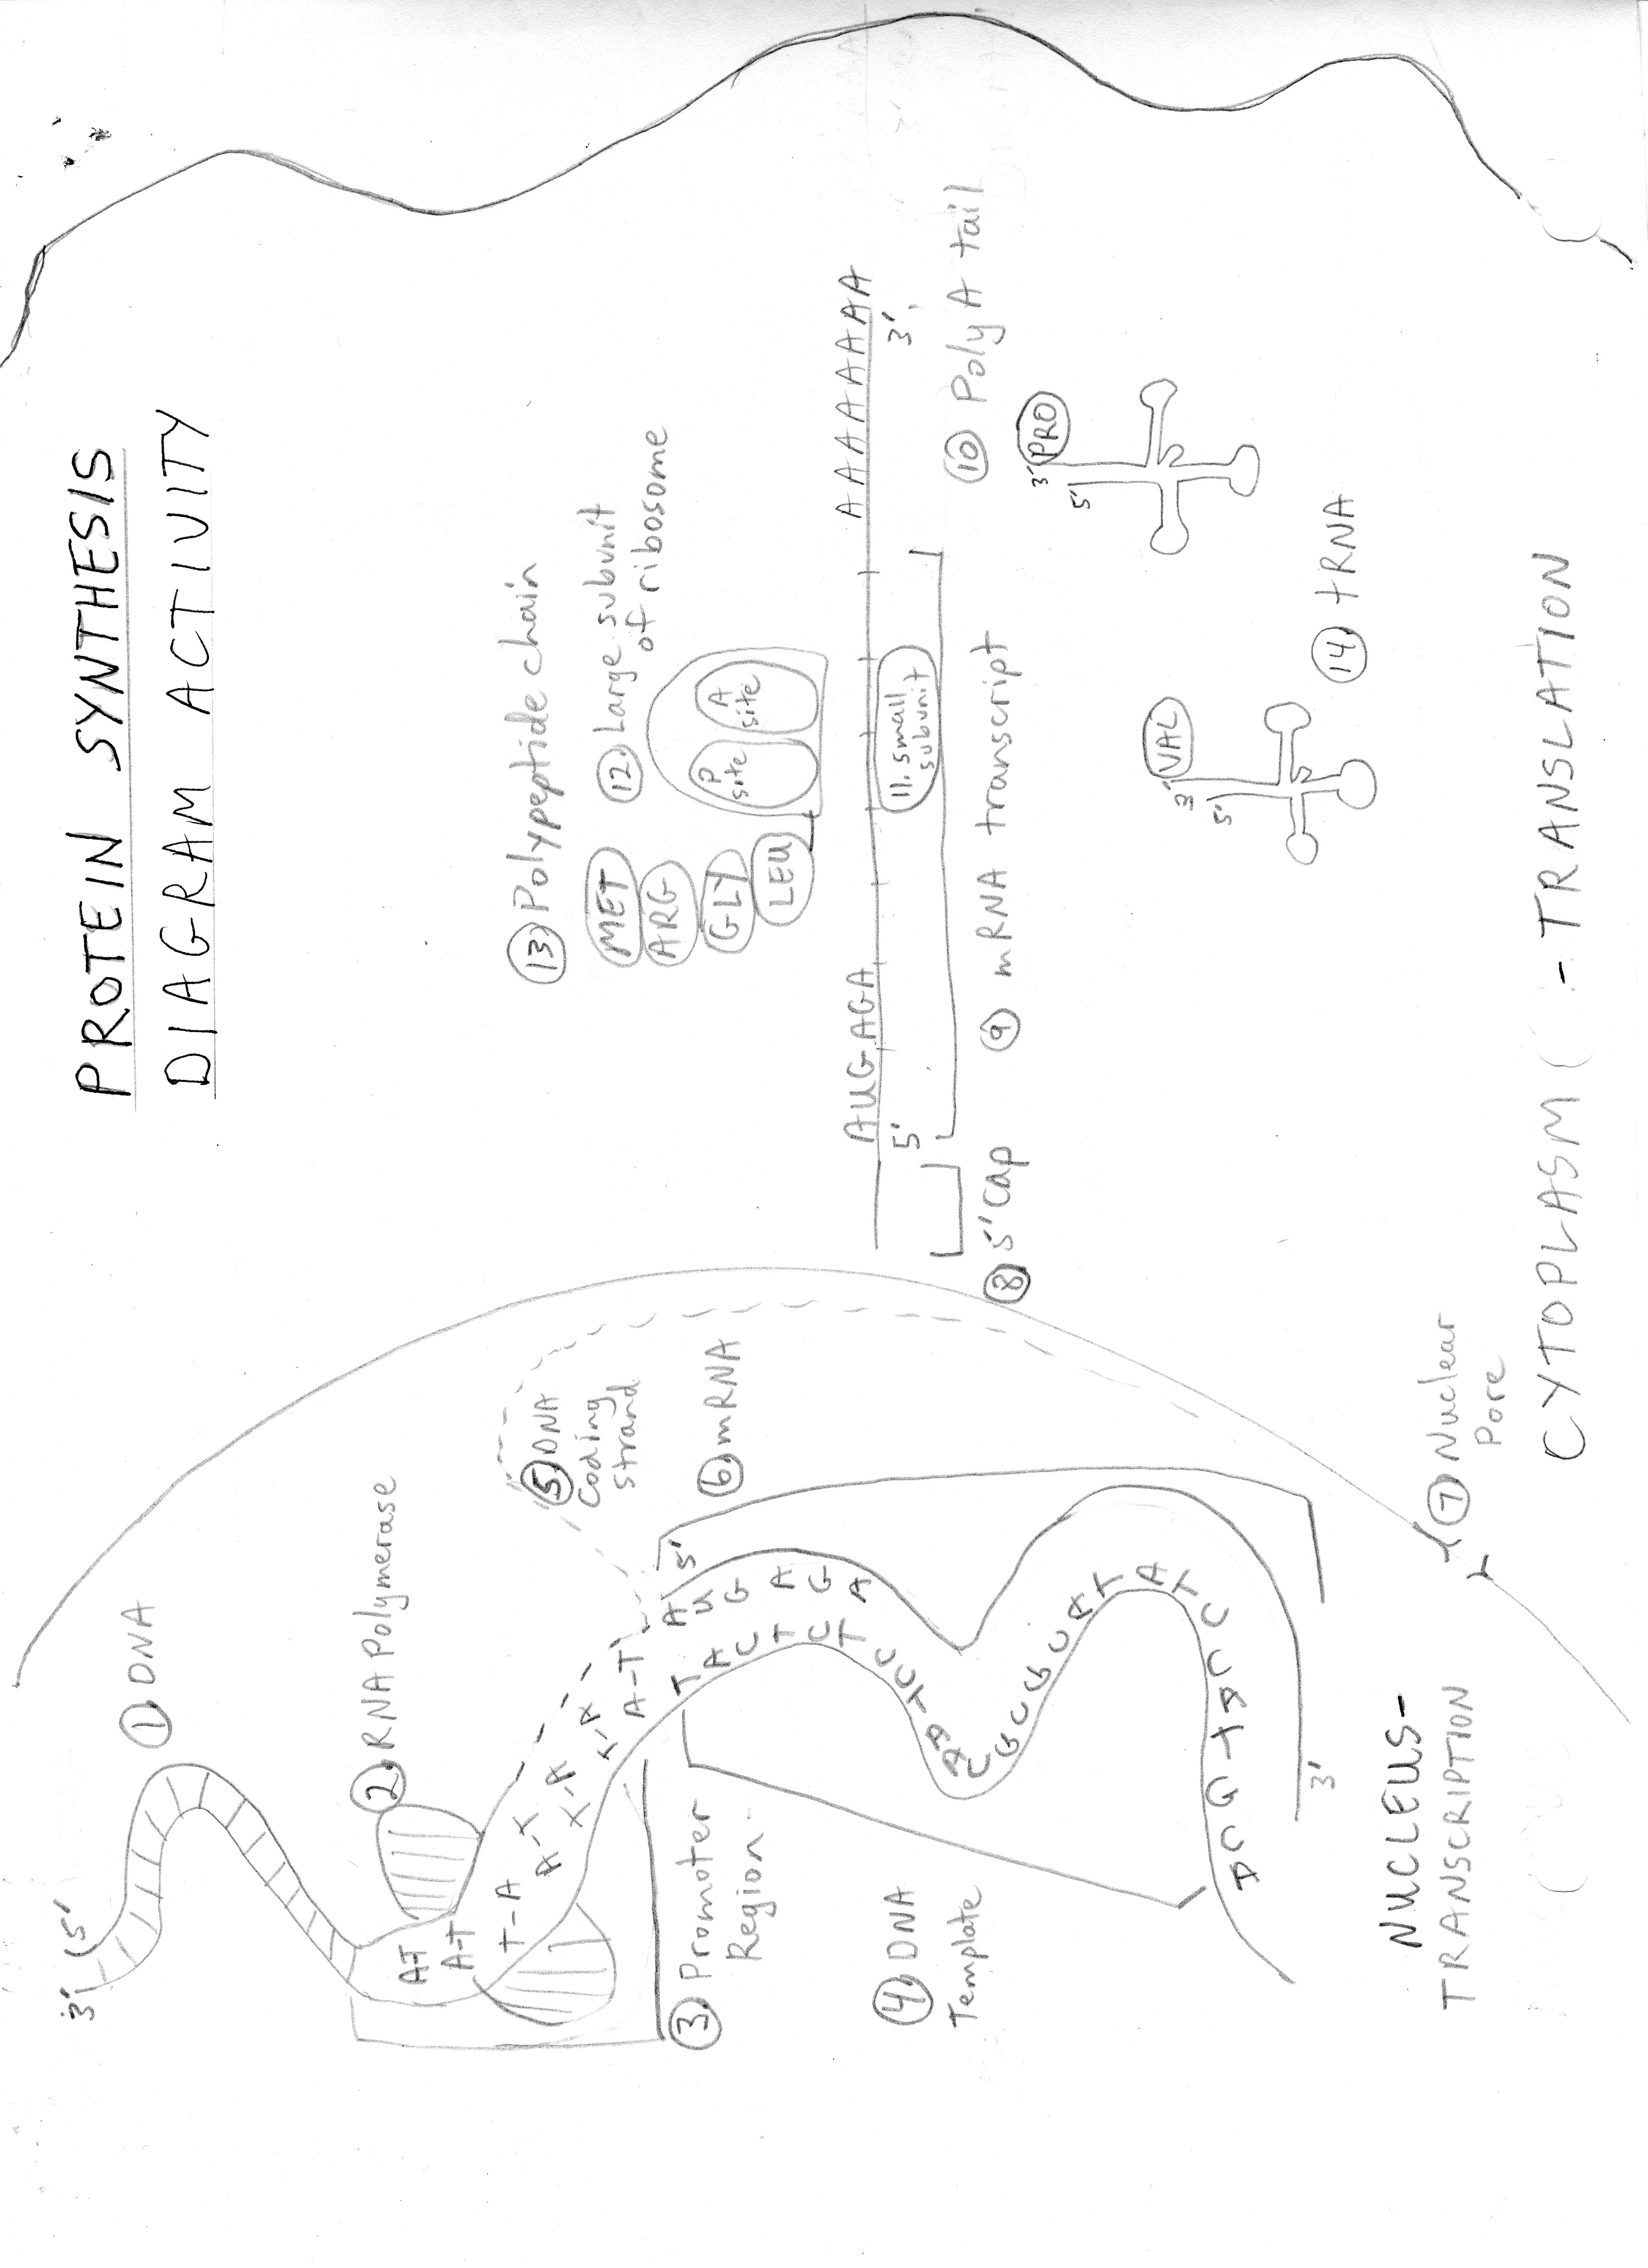 PROTEIN SYNTHESIS
DIAGRAM ACTIVITY
3' 5'
① DNA
② RNA Polymerase
A-T
A-T
T-A
A-T
T-A
A-T
③ Promoter
Region
④ DNA
Template
⑤ DNA
Coding
strand
⑥ mRNA
5'
A U G A G A
T A C T C T C C T A A C G C G C A T A T C
3'
⑦ Nuclear
Pore
NUCLEUS-
TRANSCRIPTION
⑬ Polypeptide chain
MET
ARG
GLY
LEU
⑫ Large subunit
of ribosome
P
site
A
site
AUGAGA
AAAAAAAA
5'
3'
11. small
subunit
⑧ 5' CAP
⑨ mRNA transcript
⑩ Poly A tail
3' VAL
5'
3' PRO
5'
⑭ tRNA
CYTOPLASM - TRANSLATION